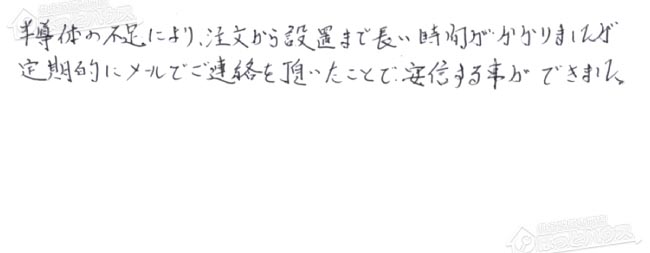 半導体の不足により、注文から設置まで長い時間がかかりましたが
定期的にメールでご連絡を頂いたことで安信する事ができました。